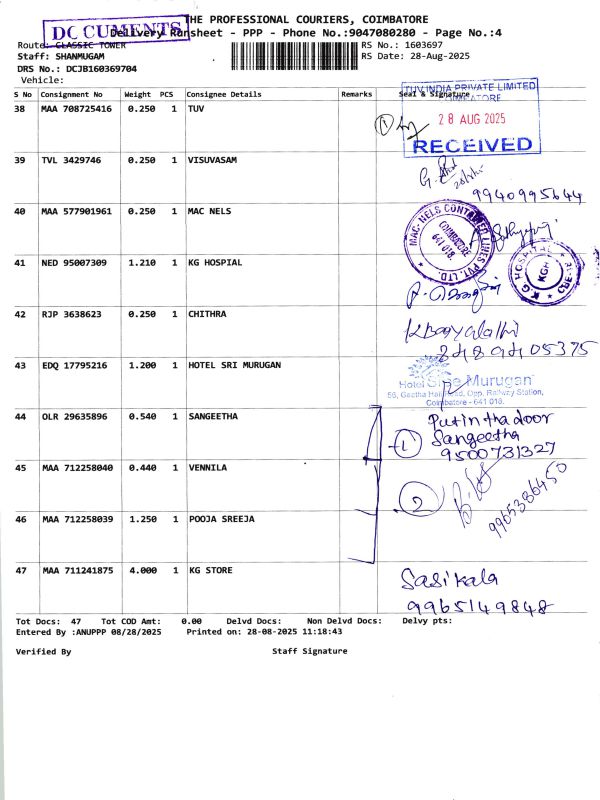 THE PROFESSIONAL COURIERS, COIMBATORE
DOCUMENTS
Delivery Runsheet - PPP - Phone No.:9047080280 - Page No.:4
Route: CLASSIC TOWER
RS No.: 1603697
Staff: SHANMUGAM
RS Date: 28-Aug-2025
DRS No.: DCJB160369704
Vehicle:
S No Consignment No Weight PCS Consignee Details Remarks Seal & Signature
38 MAA 708725416 0.250 1 TUV
TUV INDIA PRIVATE LIMITED
COIMBATORE
28 AUG 2025
RECEIVED
1
39 TVL 3429746 0.250 1 VISUVASAM
9940995644
40 MAA 577901961 0.250 1 MAC NELS
MAC-NELS CONTAINER LINES PVT. LTD.
COIMBATORE
641 018.
41 NED 95007309 1.210 1 KG HOSPIAL
K G HOSPITAL
KGH
42 RJP 3638623 0.250 1 CHITHRA
8489405375
43 EDQ 17795216 1.200 1 HOTEL SRI MURUGAN
Hotel Sree Murugan
55, Geetha Hall Road, Opp. Railway Station,
Coimbatore - 641 018.
44 OLR 29635896 0.540 1 SANGEETHA
1
Put in tha door
Sangeetha
9500731327
45 MAA 712258040 0.440 1 VENNILA
2
9965386450
46 MAA 712258039 1.250 1 POOJA SREEJA
47 MAA 711241875 4.000 1 KG STORE
Sasikala
9965149848
Tot Docs: 47 Tot COD Amt: 0.00 Delvd Docs: Non Delvd Docs: Delvy pts:
Entered By :ANUPPP 08/28/2025 Printed on: 28-08-2025 11:18:43
Verified By Staff Signature